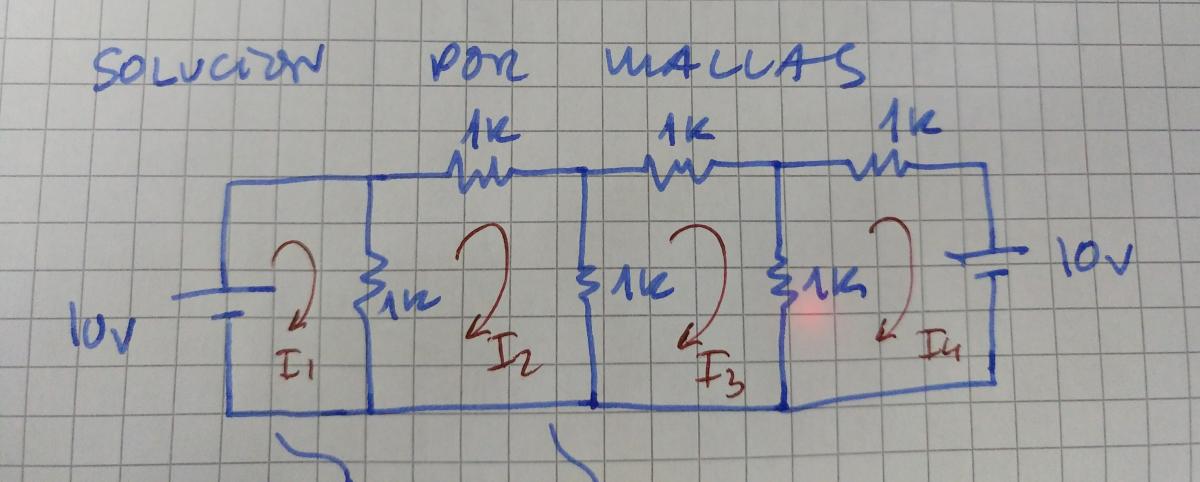 SOLUCION POR MALLAS
1K 1K 1K
10V 1K 1K 1K 10V
I1 I2 I3 I4